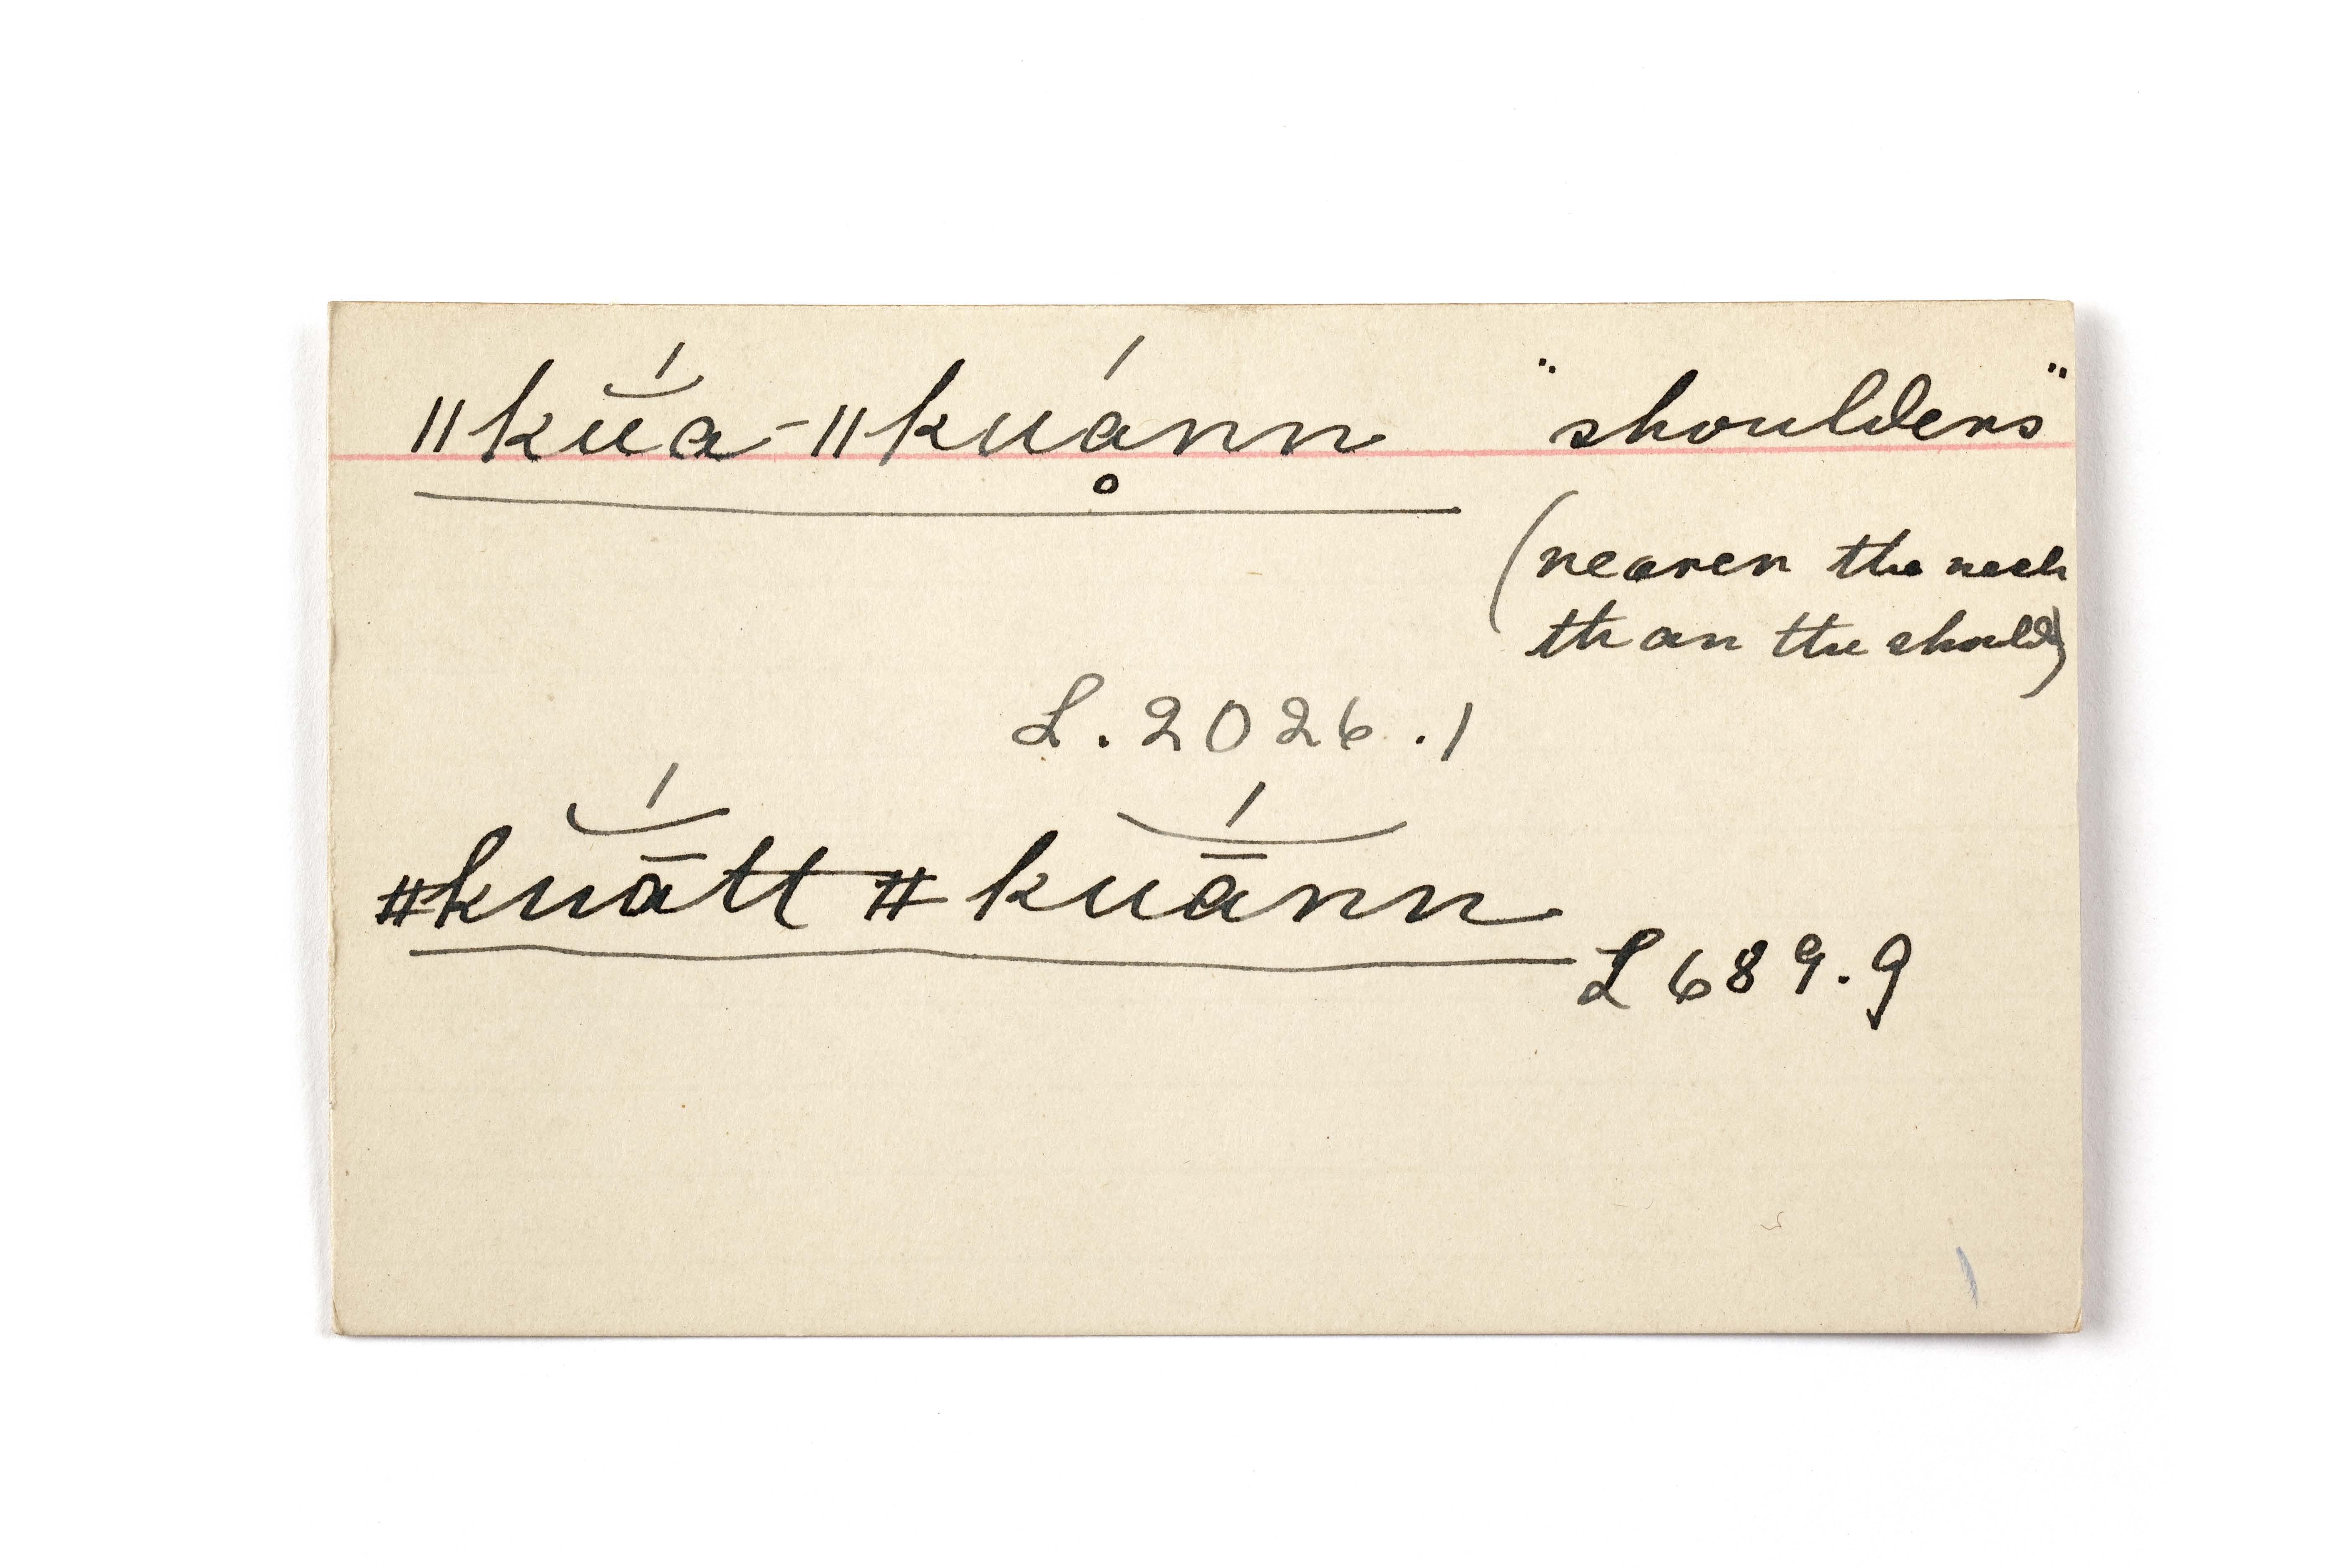 ǁkŭ́a-ǁkuḁ́nn "shoulders"
(nearer the neck
than the should)
L. 2026.1
ǂkuā̆́tt ǂkuā̆́nn
L 689.9